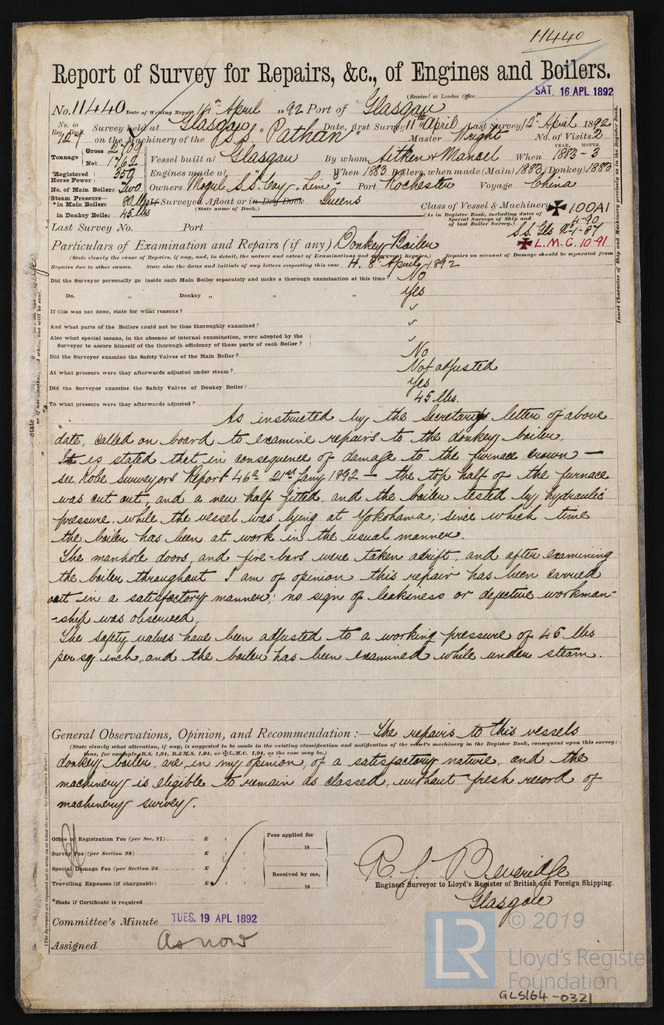 11440
Report of Survey for Repairs, &c., of Engines and Boilers.
(Received at London Office
SAT. 16 APL 1892
No. 11440 Date of Writing Report 14th April 1892 Port of Glasgow
No. in Reg. Book 127 Survey held at Glasgow Date, first Survey 11th April Last Survey 13th April 1892
on the Machinery of the S.S. "Pathan" Master Wright No. of Visits 2
Tonnage Gross Net 1762 Vessel built at Glasgow By whom Aitken & Mansel When 1883-3
Registered Horse Power 350 Engines made at When 1883 Boilers, when made (Main) 1883 (Donkey) 1883
No. of Main Boilers Two Owners Mogul S.S. Coy. Line Port Rochester Voyage China
Steam Pressure in Main Boilers 80 lbs If Surveyed Afloat or in Dry Dock Queens
in Donkey Boiler 45 lbs (State name of Dock.) Class of Vessel & Machinery 100A1
(As in Register Book, including dates of Special Surveys of Ship and of last Boiler Survey.) 4-90
Last Survey No. Port S.S. Gls
L.M.C. 10.91
Particulars of Examination and Repairs (if any) Donkey Boiler
(State clearly the cause of Repairs, if any, and, in detail, the nature and extent of Examinations and Repairs on account of Damage should be separated from
Repairs due to other causes. State also the dates and initials of any letters respecting this case H. 8th April, 1892
Did the Surveyor personally go inside each Main Boiler separately and make a thorough examination at this time? No
Do. " " Donkey " " " ? Yes
If this was not done, state for what reasons?
And what parts of the Boilers could not be thus thoroughly examined?
Also what special means, in the absence of internal examination, were adopted by the
Surveyor to assure himself of the thorough efficiency of those parts of each Boiler?
Did the Surveyor examine the Safety Valves of the Main Boiler? No
At what pressure were they afterwards adjusted under steam? Not adjusted
Did the Surveyor examine the Safety Valves of Donkey Boiler? Yes
To what pressure were they afterwards adjusted? 45 lbs.
As instructed by the Secretary's letter of above
date, called on board to examine repairs to the donkey boiler.
It is stated that in consequence of damage to the furnace crown —
see Kobe Surveyors Report 462 21st Jany 1892 — the top half of the furnace
was cut out, and a new half fitted, and the boiler tested by hydraulic
pressure, while the vessel was lying at Yokohama; since which time
the boiler has been at work in the usual manner.
The manhole doors, and fire-bars were taken adrift, and after examining
the boiler throughout I am of opinion this repair has been carried
out in a satisfactory manner: no sign of leakiness or defective workman-
-ship was observed.
The safety valves have been adjusted to a working pressure of 45 lbs
per sq inch, and the boiler has been examined while under steam.
General Observations, Opinion, and Recommendation :— The repairs to this vessels
(State clearly what alteration, if any, is suggested to be made in the existing classification and notification of the vessel's machinery in the Register Book, consequent upon this survey:
thus, for example, B.S. 1,91, B.&M.S. 1,91, or L.M.C. 1,91, as the case may be.)
donkey boiler, are, in my opinion, of a satisfactory nature, and the
machinery is eligible to remain as classed, without fresh record of
machinery survey.
Office or Registration Fee (per Sec. 27) £ : : Fees applied for
Survey Fee (per Section 28) £ : : 18
Special Damage Fee (per Section 28 £ : : Received by me,
Travelling Expenses (if chargeable) £ : : 18
R. J. Beveridge
Engineer Surveyor to Lloyd's Register of British and Foreign Shipping.
*State if Certificate is required
Glasgow
Committee's Minute TUES. 19 APL 1892
Assigned As now
LR
© 2019
Lloyd's Register
Foundation
GLS164-0321